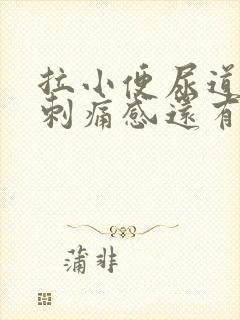 拉小便尿道
刺痛感還有
蒲非